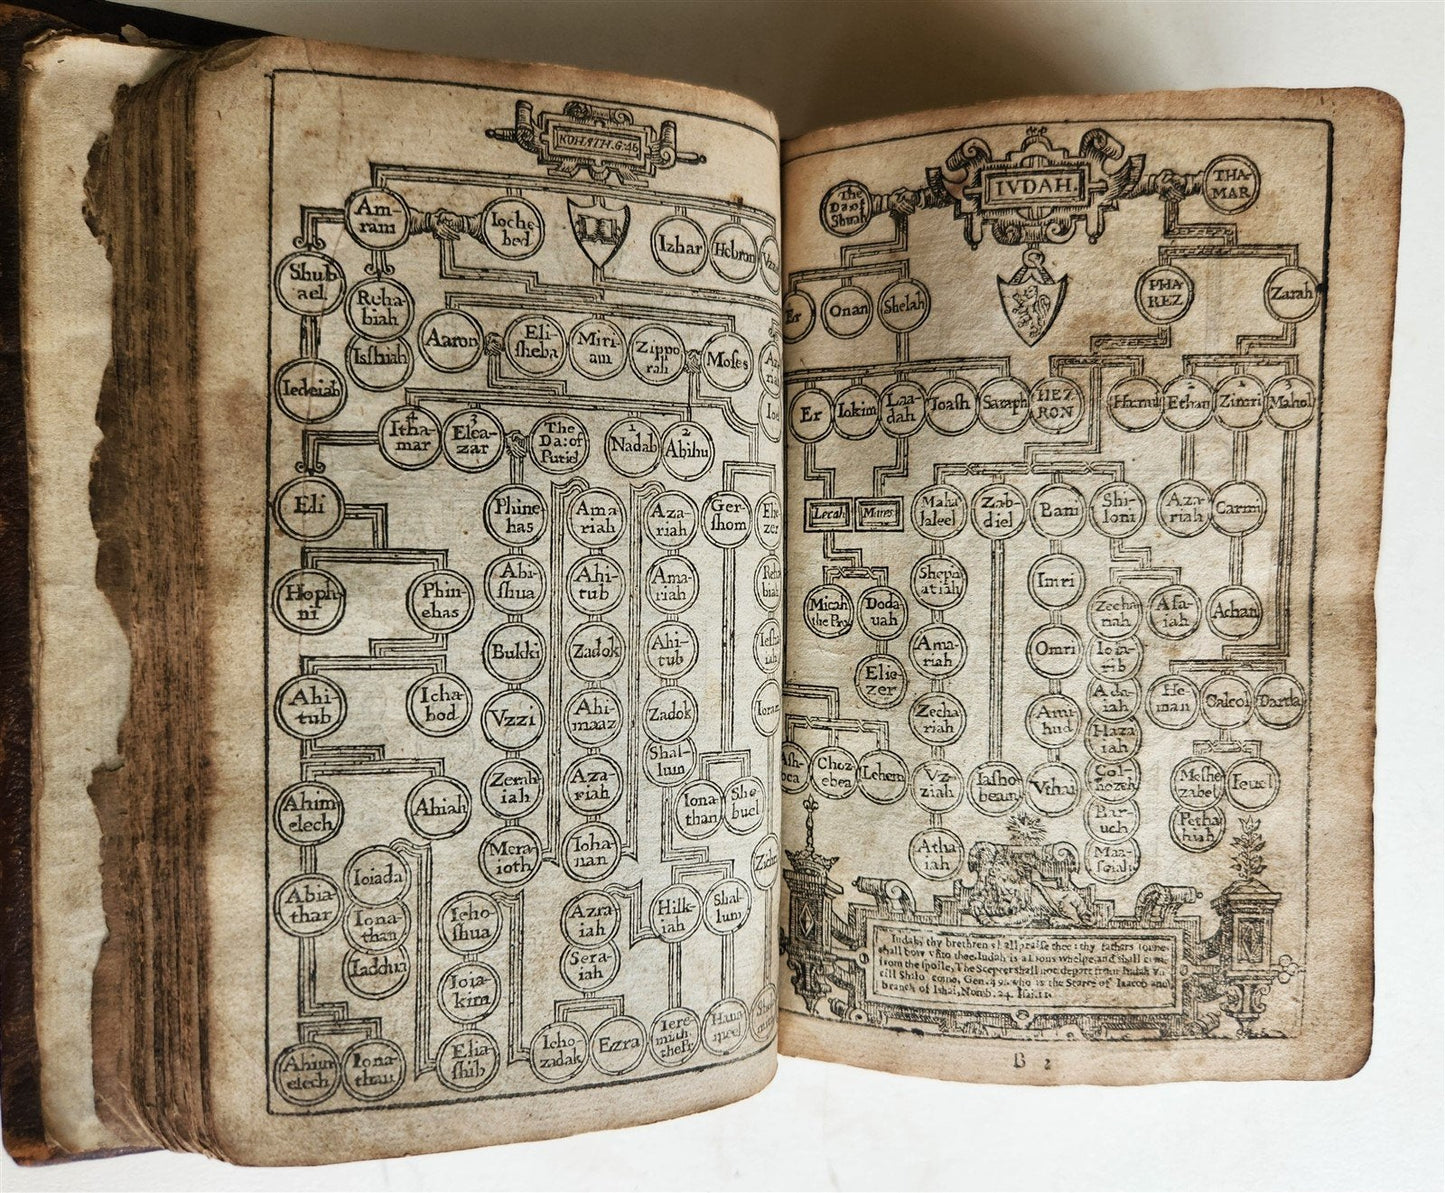 KOHATH. G:46
Am-
ram
Ioche
bed
Izhar
Hebron
Shub
ael
Reha-
biah
Isshiah
Iedeiah
Aaron
Eli-
sheba
Miri-
am
Zippo
rah
Moses
4
Itha-
mar
3
Elea-
zar
The
Da: of
Putiel
1
Nadab
2
Abihu
Eli
Phine
has
Ama-
riah
Aza-
riah
Ger-
shom
Elie-
zer
Hoph-
ni
Phin-
ehas
Abi-
shua
Ahi-
tub
Ama-
riah
Bukki
Zadok
Ahi-
tub
Ahi-
tub
Icha-
bod
Vzzi
Ahi-
maaz
Zadok
Shal-
lum
Zerah
iah
Aza-
riah
Iona-
than
She
buel
Ahim
elech
Ahiah
Mera-
ioth
Ioha-
nan
Abia-
thar
Ioiada
Iona-
than
Iaddua
Ieho-
shua
Ioia-
kim
Elia-
shib
Azra-
iah
Sera-
iah
Hilk-
iah
Shal-
lum
Ahim
elech
Iona-
than
Ieho-
zadak
Ezra
Iere-
miah
thePr
Hana-
meel
The
Da: of
Shuah
IVDAH.
THA-
MAR
Er
Onan
Shelah
PHA
REZ
Zarah
Er
Iokim
Laa-
dah
Ioash
Saraph
HEZ
RON
Hamul
2
Ethan
1
Zimri
3
Mahol
Lecah
Mares
Maha
laleel
Zab-
diel
Bani
Shi-
loni
Aza-
riah
Carmi
Micah
the Pro
Doda-
uah
Sheph
atiah
Imri
Zecha-
riah
Asa-
iah
Achan
Elie-
zer
Ama-
riah
Omri
Ioia-
rib
Zecha
riah
Ami-
hud
Ada-
iah
He-
man
Calcol
Darda
Haza
iah
Choz-
ebea
Lehem
Vz-
ziah
Iasho-
beam
Vthai
Col-
hozeh
Meshe
zabel
Ieuel
Bar-
uch
Petha
hiah
Atha
iah
Maa-
seiah
Iudah, thy brethren shall praise thee: thy fathers sonnes
shall bow vnto thee. Iudah is a Lions whelpe, and shall come
from the spoile, The Scepter shall not depart from Iudah
till Shilo come, Gen. 49. who is the Starre of Iaacob and
branch of Ishai, Nomb. 24. Isai. 11.
B 2